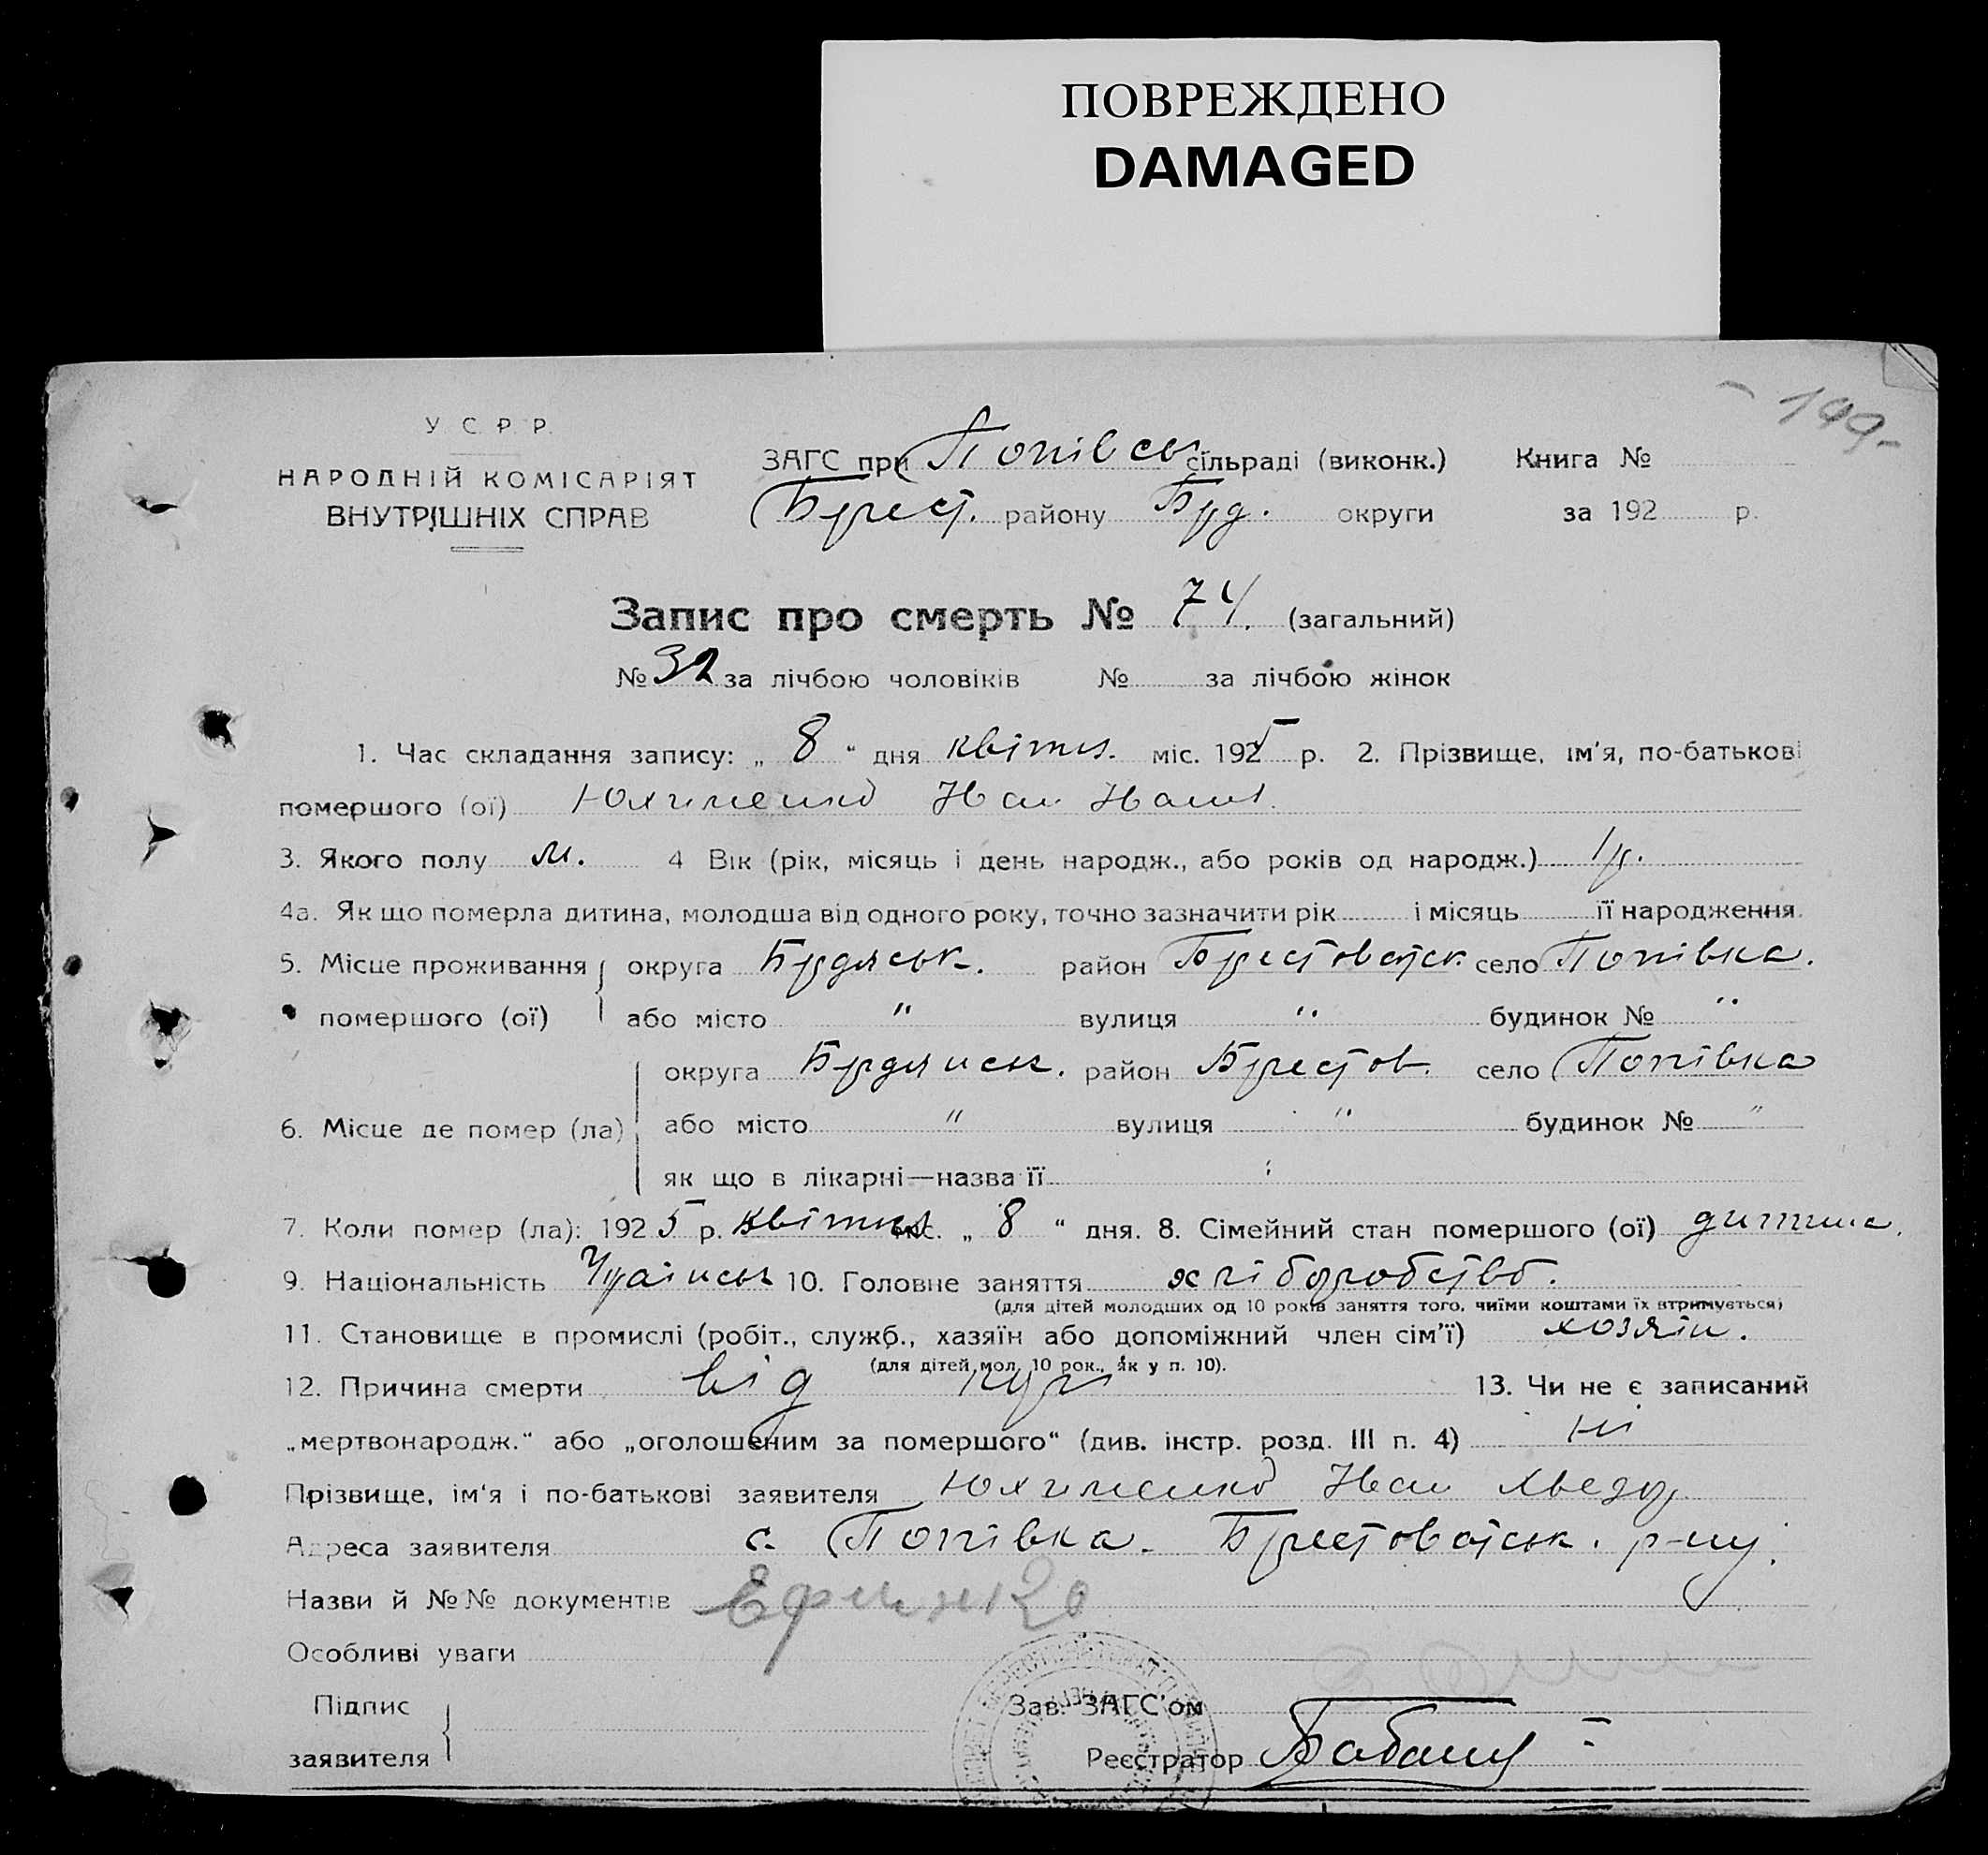 ПОВРЕЖДЕНО
DAMAGED
- 149-
У. С. Р. Р.
НАРОДНІЙ КОМІСАРІЯТ
ВНУТРІШНІХ СПРАВ
ЗАГС при Попівськ сільраді (виконк.) Книга №
Брест. району Брд. округи за 192 р.
Запис про смерть № 74. (загальний)
№ 32 за лічбою чоловіків № за лічбою жінок
1. Час складання запису: „ 8 “ дня квітня. міс. 1925 р. 2. Прізвище, ім'я, по-батькові
помершого (ої) Юхименко Иван Иванов.
3. Якого полу м. 4 Вік (рік, місяць і день народж., або років од народж.) 1 р.
4а. Як що померла дитина, молодша від одного року, точно зазначити рік і місяць її народження.
5. Місце проживання округа Брдяськ. район Брестоватск село Попівка.
помершого (ої) або місто " вулиця " будинок № "
округа Брдянськ. район Брестов. село Попівка
6. Місце де помер (ла) або місто " вулиця " будинок № "
як що в лікарні—назва її
7. Коли помер (ла): 1925 р. квітня міс. „ 8 “ дня. 8. Сімейний стан помершого (ої) дитина.
9. Національність Україньськ 10. Головне заняття хліборобство.
(для дітей молодших од 10 років заняття того, чиїми коштами їх втримується)
11. Становище в промислі (робіт., служб., хазяїн або допоміжний член сім'ї) хозяін.
(для дітей мол. 10 рок., як у п. 10).
12. Причина смерти від кору 13. Чи не є записаний
„мертвонародж.“ або „оголошеним за помершого“ (див. інстр. розд. III п. 4) Ні
Прізвище, ім'я і по-батькові заявителя Юхименко Иван Хведор
Адреса заявителя с. Попівка. Брестоватськ. р-ну.
Назви й №№ документів
Особливі уваги
Підпис
заявителя
Зав. ЗАГС'ом
Реєстратор Бабаш